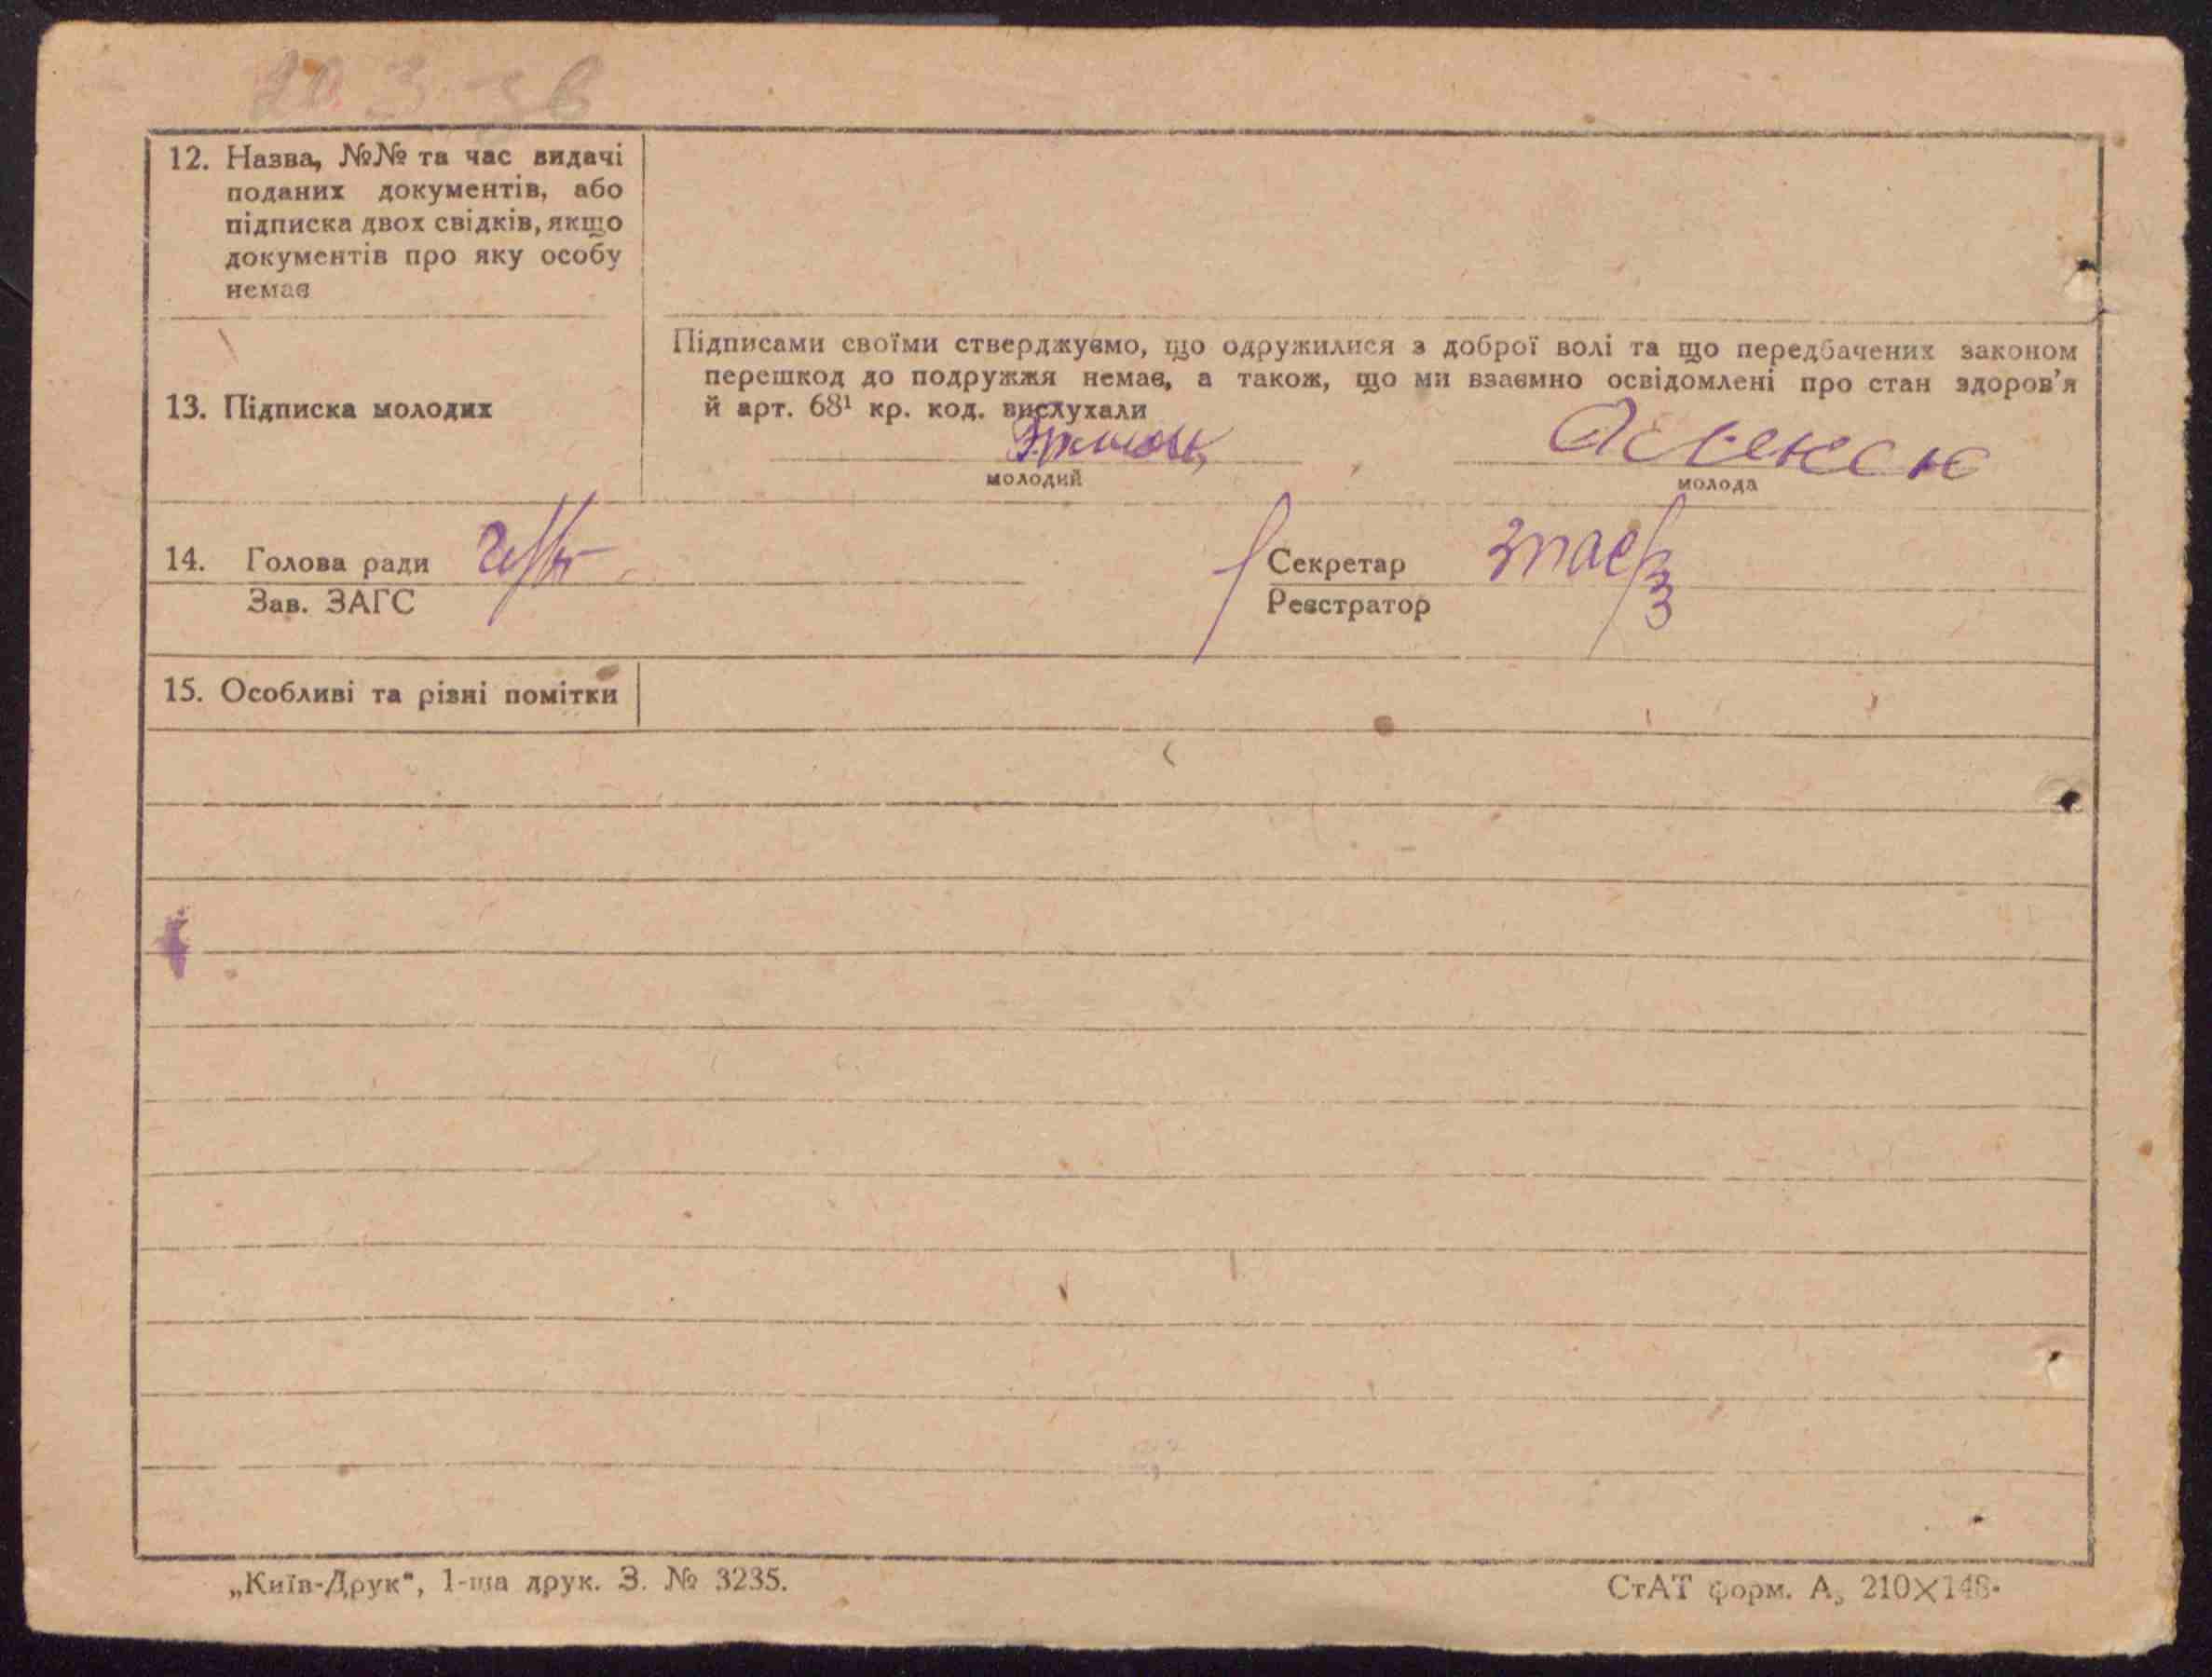 12. Назва, №№ та час видачі
поданих документів, або
підписка двох свідків, якщо
документів про яку особу
немає
13. Підписка молодих
Підписами своїми стверджуємо, що одружилися з доброї волі та що передбачених законом
перешкод до подружжя немає, а також, що ми взаємно освідомлені про стан здоров'я
й арт. 68¹ кр. код. вислухали
молодий
молода
14. Голова ради
Зав. ЗАГС
Секретар
Реєстратор
15. Особливі та різні помітки
„Київ-Друк“, 1-ша друк. З. № 3235.
СтАТ форм. А₅ 210×148.